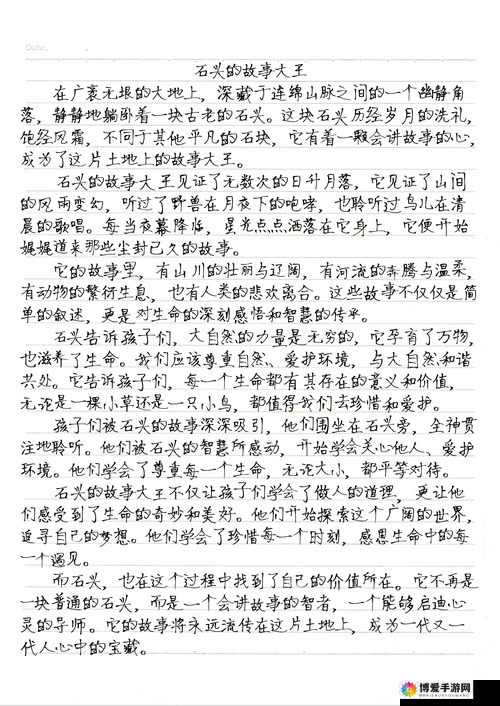 Date.
石兴的故事大王
在广袤无垠的大地上，深藏于连绵山脉之间的一个幽静角
落，静静地躺卧着一块古老的石兴。这块石头历经岁月的洗礼，
饱经风霜，不同于其他平凡的石块，它有着一颗会讲故事的心，
成为了这片土地上的故事大王。
石兴的故事大王见证了无数次的日升月落，它见证了山间
的风雨变幻，听过了野兽在月夜下的咆哮，也聆听过鸟儿在清
晨的歌唱。每当夜幕降临，星光点点洒落在它身上，它便开始
娓娓道来那些尘封已久的故事。
它的故事里，有山川的壮丽与辽阔，有河流的奔腾与温柔，
有动物的繁衍生息，也有人类的悲欢离合。这些故事不仅仅是简
单的叙述，更是对生命的深刻感悟和智慧的传承。
石兴告诉孩子们，大自然的力量是无穷的，它孕育了万物，
也滋养了生命。我们应该尊重自然、爱护环境，与大自然和谐
共处。它告诉孩子们，每一个生命都有其存在的意义和价值，
无论是一棵小草还是一只小鸟，都值得我们去珍惜和爱护。
孩子们被石兴的故事深深吸引，他们围坐在石头旁，全神贯
注地聆听。他们被石兴的智慧所感动，开始学会关心他人、爱护
环境。他们学会了尊重每一个生命，无论大小，都平等对待。
石兴的故事大王不仅让孩子们学会了做人的道理，更让他
们感受到了生命的奇妙和美好。他们开始探索这个广阔的世界，
追寻自己的梦想。他们学会了珍惜每一个时刻，感恩生命中的每
一个遇见。
而石兴，也在这个过程中找到了自己的价值所在。它不再是
一块普通的石头，而是一个会讲故事的智者，一个能够启迪心
灵的导师。它的故事将永远流传在这片土地上，成为一代又一
代人心中的宝藏。
博爱手游网